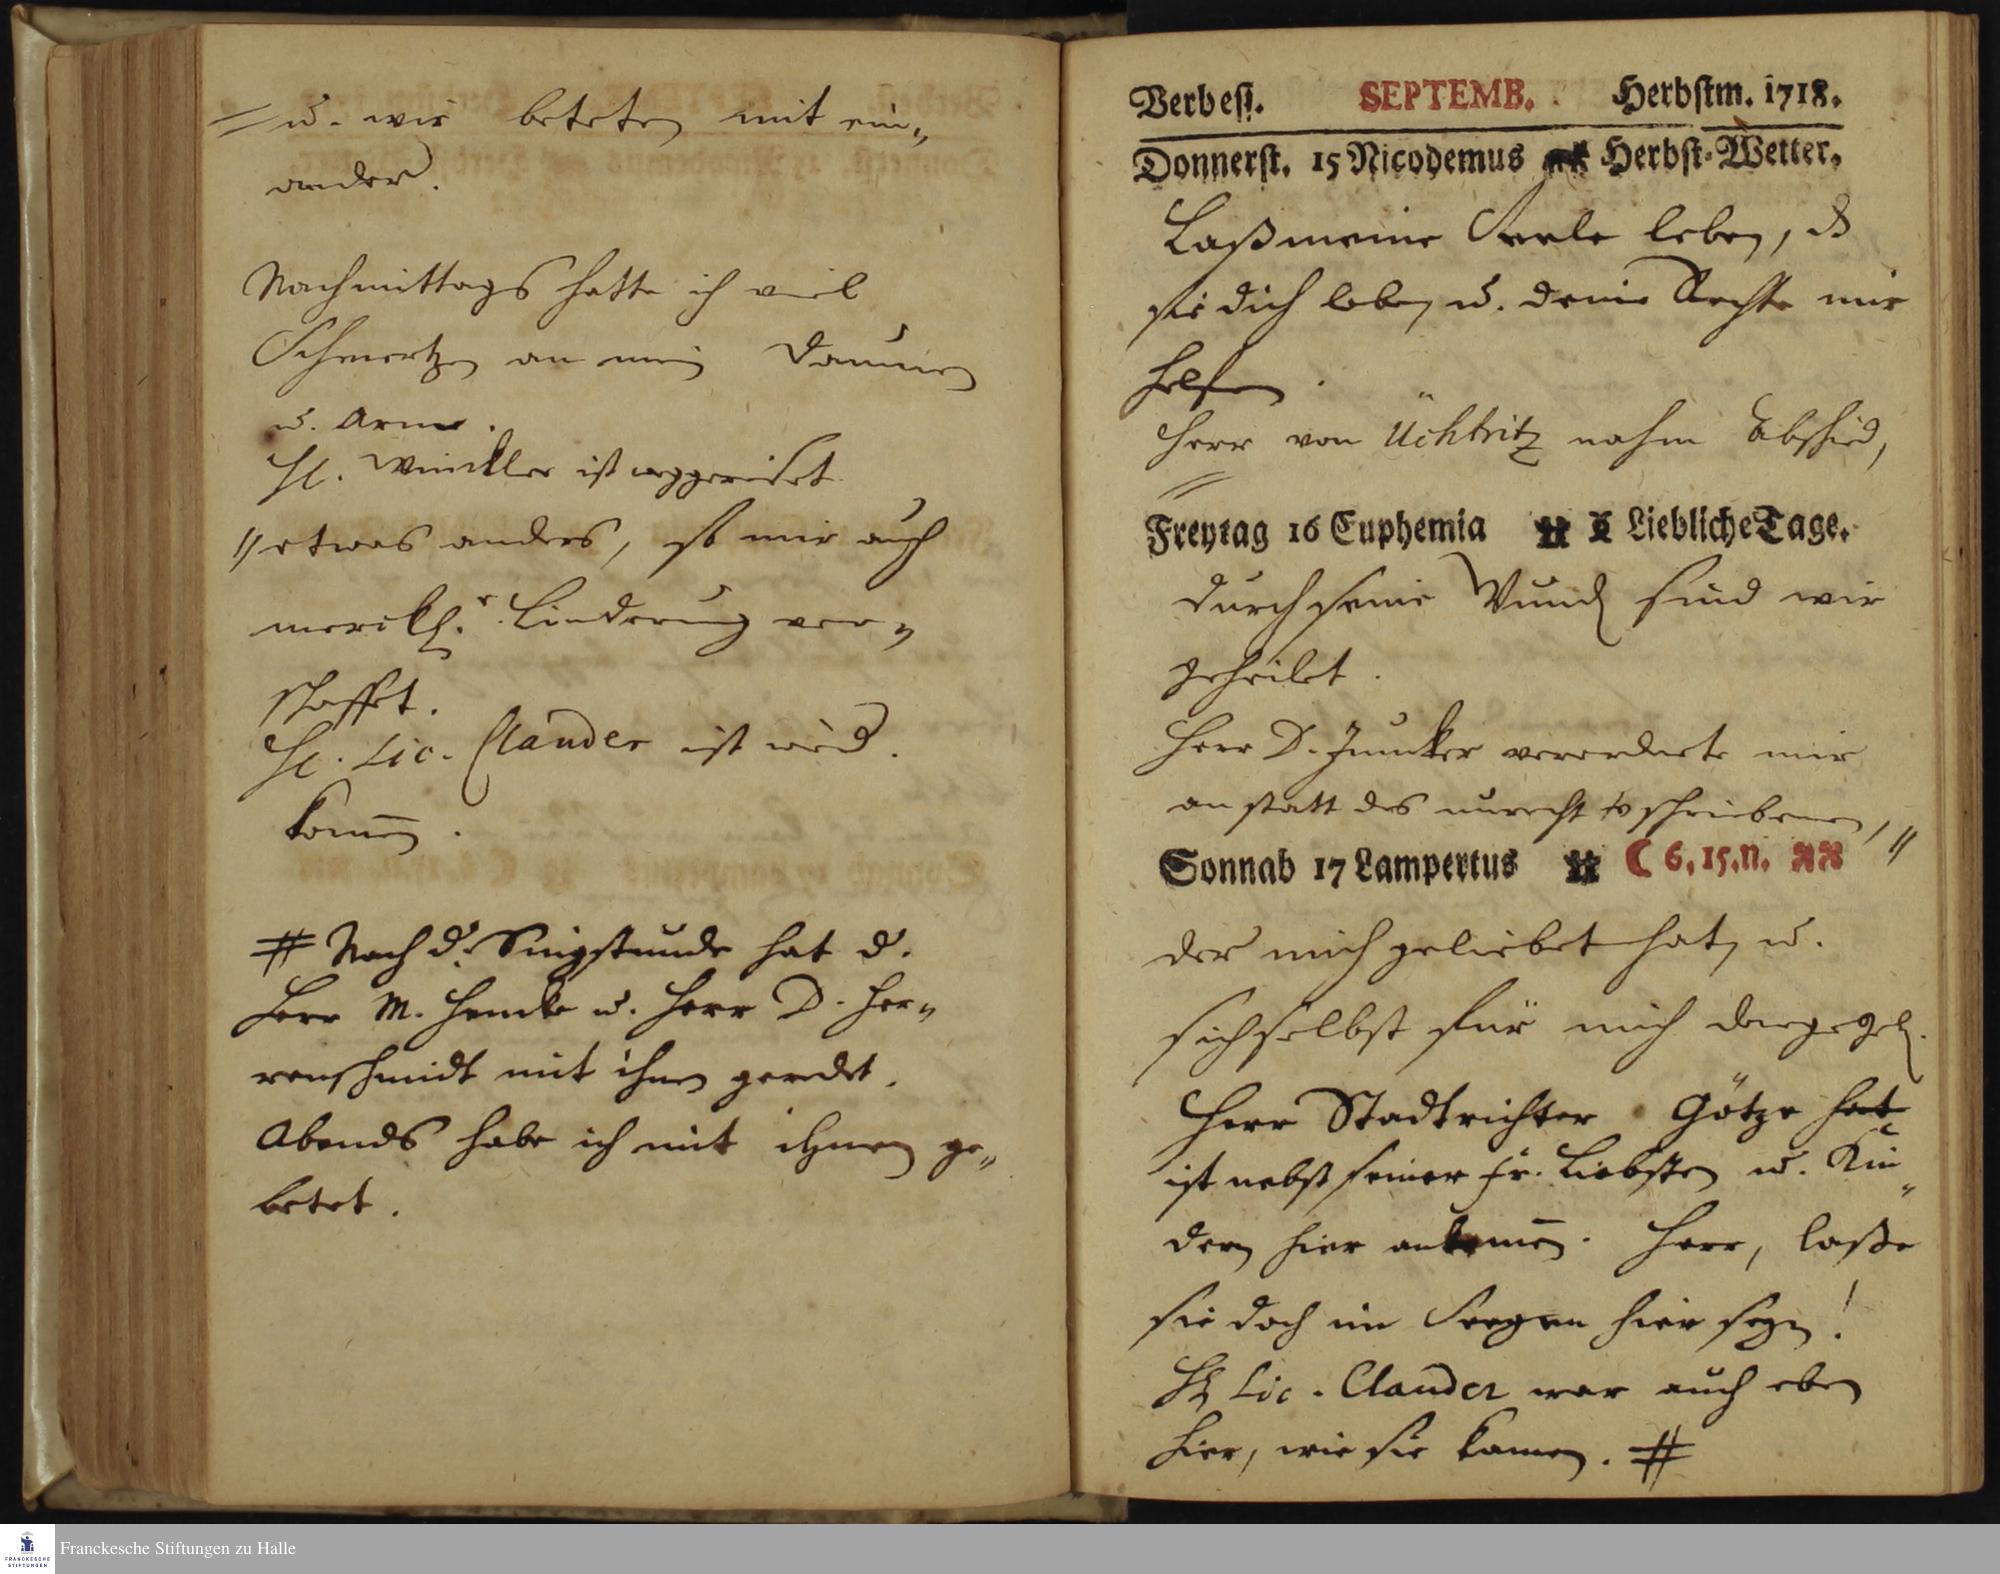 u. wir beteten mit ein„
ander.
Nachmittags hatte ich viel
Schmertzen an mein Daumen
u. Arme.
H. Winckler ist weggereiset.
etwas anders, so mir auch
merckl.r Linderung ver„
schaffet.
H. Lic. Clauder ist wied.
kom̄en.
# Nach d. Singstunde hat d.
Herr M. Hencke u. Herr D. Her„
renschmidt mit ihnen geredet.
Abends habe ich mit ihnen ge„
betet.
Verbess. SEPTEMB. Herbstm. 1718.
Donnerst. 15 Nicodemus Herbst-Wetter.
Laß meine Seele leben, dß
sie dich lobe, u. deine Rechte mir
helfen.
Herr von Üchtritz nahm Abschied,
Freytag 16 Euphemia Liebliche Tage.
durch seine Wund sind wir
geheilet.
Herr D. Juncker verordnete mir
an statt des unrecht schriebenen, „
Sonnab 17 Lampertus ☾ 6, 15. N.
der mich geliebet hat, u.
sich selbst für mich dargegeb.
Herr Stadtrichter Götze hat
ist nebst seiner Fr. Liebsten u. Kin„
dern hier ankom̄en. Herr, laße
sie doch im Seegen hier seyn!
H Lic. Clauder war auch eben
hier, wie sie kamen. #
Franckesche Stiftungen zu Halle
FRANCKESCHE
STIFTUNGEN